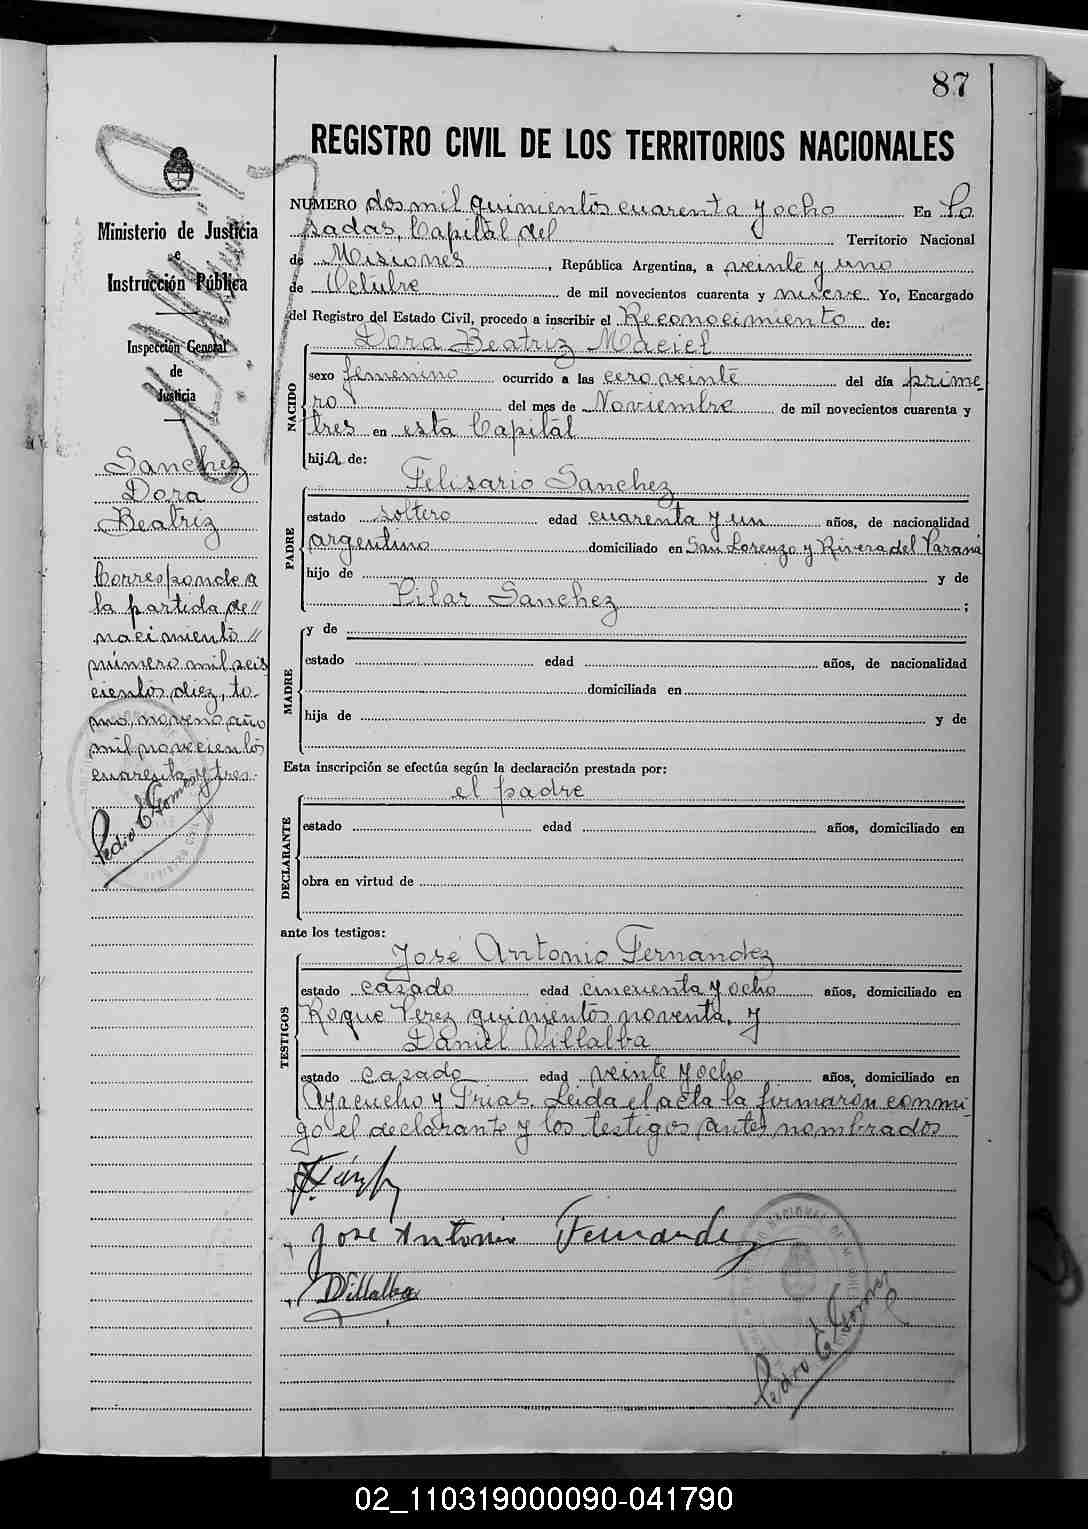 87
REGISTRO CIVIL DE LOS TERRITORIOS NACIONALES
Ministerio de Justicia
e
Instrucción Pública
Inspección General
de
Justicia
Sanchez
Dora
Beatriz
Corresponde a
la partida de//
nacimiento//
número mil seis
cientos diez, to-
mo, noveno, año
mil novecientos
cuarenta y tres.-
Pedro E Gomez
NUMERO dos mil quinientos cuarenta y ocho En Po
sadas, Capital del Territorio Nacional
de Misiones, República Argentina, a veinte y uno
de Octubre de mil novecientos cuarenta y nueve Yo, Encargado
del Registro del Estado Civil, procedo a inscribir el Reconocimiento de:
Dora Beatriz Maciel
NACIDO
sexo femenino ocurrido a las cero veinte del día prime-
ro del mes de Noviembre de mil novecientos cuarenta y
tres en esta Capital
hija de:
PADRE
Felisario Sanchez
estado soltero edad cuarenta y un años, de nacionalidad
argentino domiciliado en San Lorenzo y Rivera del Paraná
hijo de y de
Pilar Sanchez ;
MADRE
y de
estado edad años, de nacionalidad
domiciliada en
hija de y de
Esta inscripción se efectúa según la declaración prestada por:
el padre
DECLARANTE
estado edad años, domiciliado en
obra en virtud de
ante los testigos:
TESTIGOS
José Antonio Fernandez
estado casado edad cincuenta y ocho años, domiciliado en
Roque Perez quinientos noventa, y
Daniel Villalba
estado casado edad veinte y ocho años, domiciliado en
Ayacucho y Frias. Leida el acta la firmaron conmi-
go el declarante y los testigos antes nombrados
Jose Antonio Fernandez
DVillalba
Pedro E Gomez
02_110319000090-041790